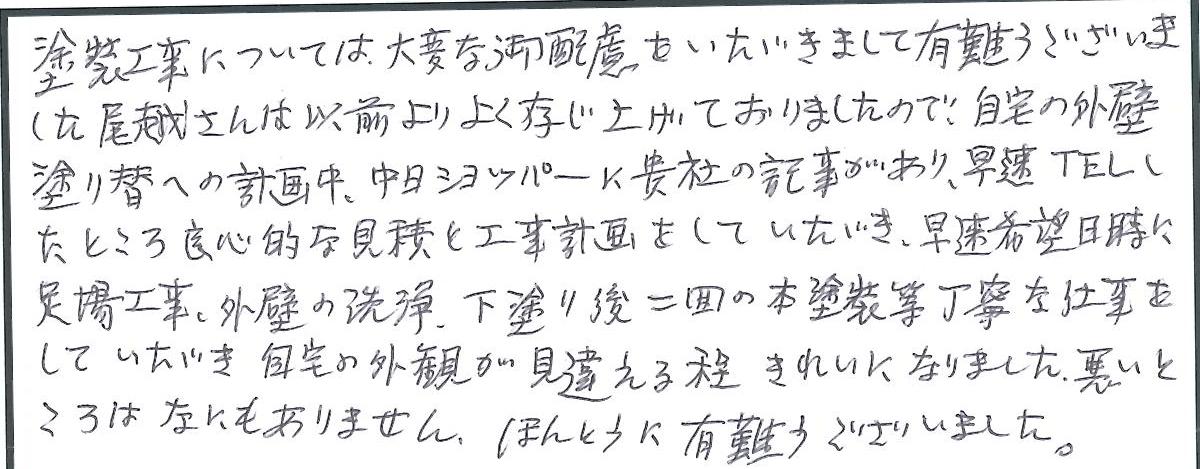 塗装工事については、大変な御配慮をいただきまして有難うございま
した尾越さんは以前よりよく存じ上げておりましたので、自宅の外壁
塗り替への計画中、中日ショッパーに貴社の記事があり、早速TELし
たところ良心的な見積と工事計画をしていただき、早速希望日時に
足場工事、外壁の洗浄、下塗り後二回の本塗装等丁寧な仕事を
していただき自宅の外観が見違える程きれいになりました、悪いと
ころはなにもありません、ほんとうに有難うございました。